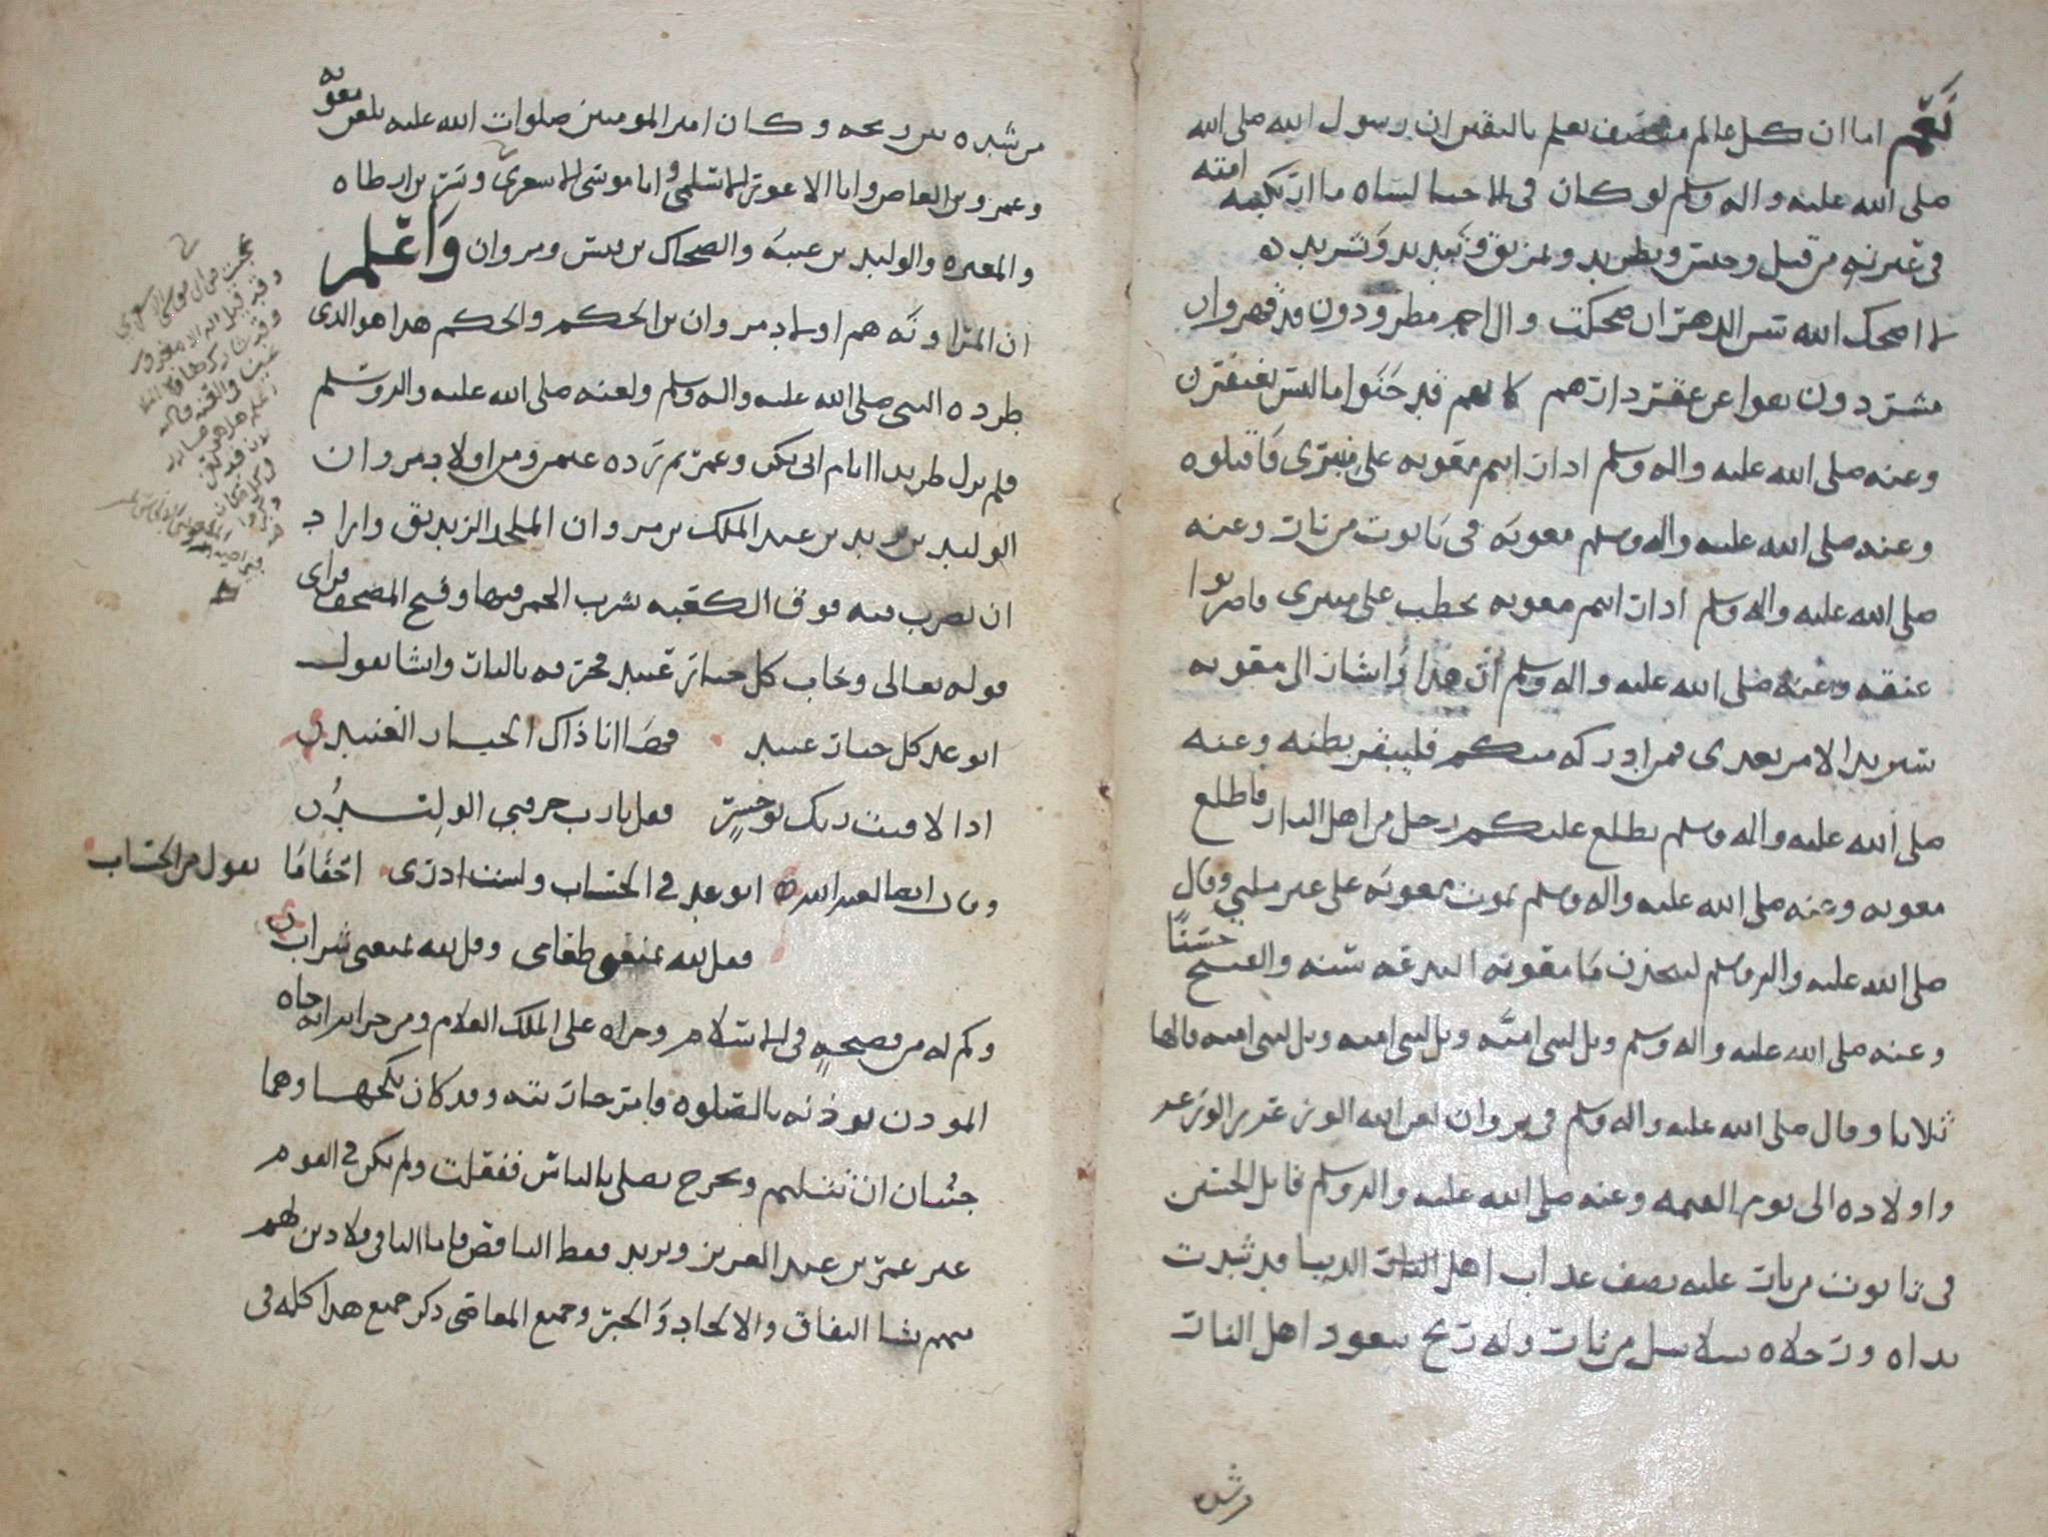 نعم اما ان كل عالم منصف يعلم باليقين ان رسول الله صلى الله
صلى الله عليه واله وسلم لو كان في الاحيا لساه ما ارتكبته امته
في عترته من قتل وحبس وتطريد وتمزيق وتبديد وتشريد
لا اضحك الله سن الدهر ان ضحكت وال احمد مطرودون قد قهروا
مشردون نفوا عن عقر دارهم كانهم قد جنوا ما ليس يغتفر
وعنه صلى الله عليه واله وسلم اذا رايتم معويه على منبري فاقتلوه
وعنه صلى الله عليه واله وسلم معويه في تابوت من نار وعنه
صلى الله عليه واله وسلم اذا رايتم معويه يخطب على منبري فاضربوا
عنقه وعنه صلى الله عليه واله وسلم ان هذا واشار الى معويه
سيريد الامر بعدي فمن ادركه منكم فليبقر بطنه وعنه
صلى الله عليه واله وسلم يطلع عليكم رجل من اهل النار فاطلع
معويه وعنه صلى الله عليه واله وسلم يموت معويه على غير ملتي وقال
صلى الله عليه واله وسلم ليتخذن معويه البدعه سنه والقبيح حسنا
وعنه صلى الله عليه واله وسلم ويل لبني اميه ويل لبني اميه ويل لبني اميه قالها
ثلاثا وقال صلى الله عليه واله وسلم في مروان لعن الله الوزغ بن الوزغ
واولاده الى يوم القيمه وعنه صلى الله عليه واله وسلم قاتل الحسين
في تابوت من نار عليه نصف عذاب اهل الدنيا قد شدت
يداه ورجلاه بسلاسل من نار وله ريح يتعوذ اهل النار
من شده
من شده نتن ريحه وكان امير المومنين صلوات الله عليه يلعن معويه
وعمرو بن العاص وابا الاعور السلمي وابا موسى الاشعري وبسر بن ارطاه
والمغيره والوليد بن عقبه والضحاك بن قيس ومروان واعلم
ان المراونه هم اولاد مروان بن الحكم والحكم هذا هو الذي
طرده النبي صلى الله عليه واله وسلم ولعنه صلى الله عليه واله وسلم
فلم يزل طريدا ايام ابي بكر وعمر ثم رده عثمن ومن اولاد مروان
الوليد بن يزيد بن عبد الملك بن مروان الملحد الزنديق واراد
ان يضرب قبه فوق الكعبه يشرب الخمر فيها وفتح المصحف فراى
قوله تعالى وخاب كل جبار عنيد فخرقه بالنبل وانشا يقول
اتوعد كل جبار عنيد فها انا ذاك الجبار العنيد
اذا لاقيت ربك يوم حشر فقل يا رب خرقني الوليد
وقال ايضا لعنه الله اتوعدني الحساب ولست ادري احقا ما يقول من الحساب
فقل لله يمنعني طعامي وقل لله يمنعني شرابي
وكم له من فضيحه في الاسلام وجراه على الملك العلام ومن جراته انه جاه
الموذن يوذنه بالصلوه فامر جاريته وقد كان نكحها وهما
جنبان ان تتلثم وتخرج تصلي بالناس ففعلت ولم يكن في القوم
غير عمر بن عبد العزيز ويزيد فقط الناقص فاما الباقي فلا دين لهم
منهم نشا النفاق والالحاد والجبر وجميع المعاصي ذكر جميع هذا كله في